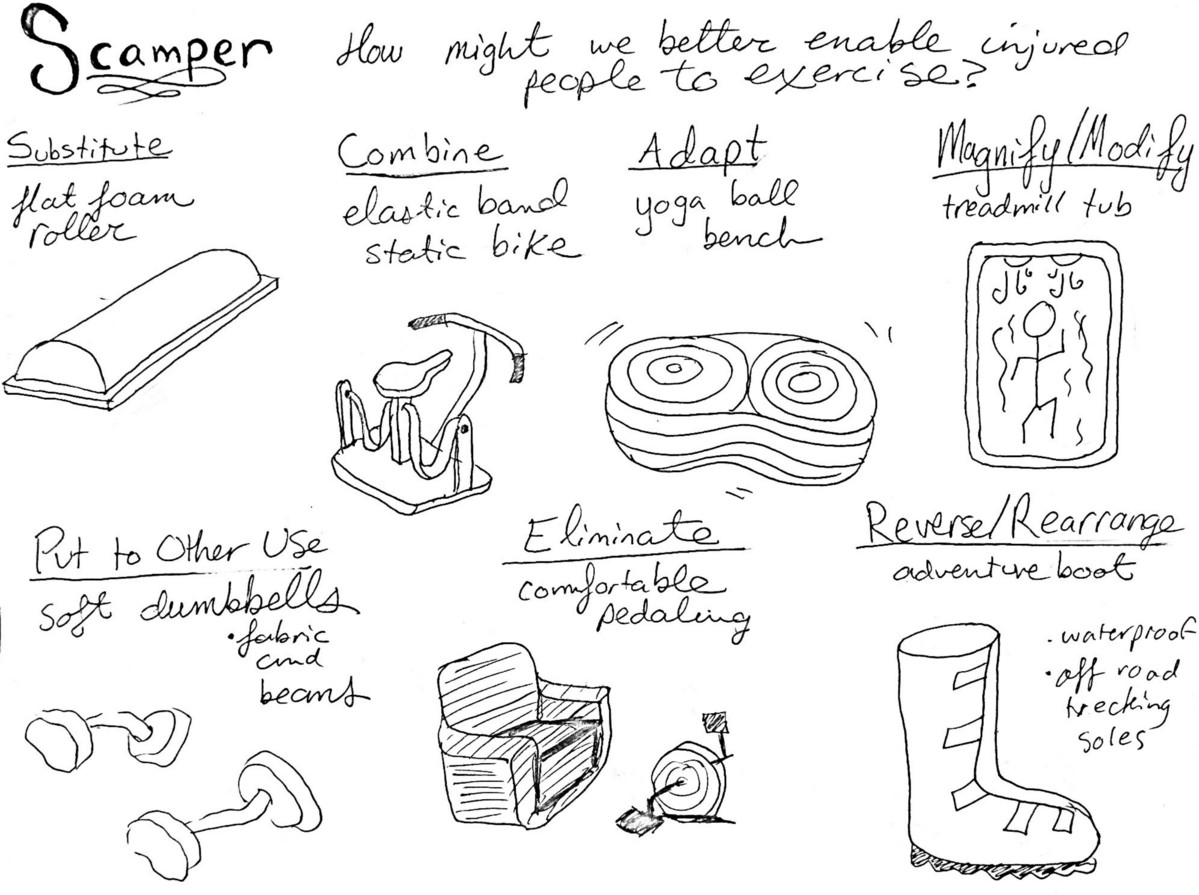 Scamper
How might we better enable injured
people to exercise?
Substitute
flat foam
roller
Combine
elastic band
static bike
Adapt
yoga ball
bench
Magnify/Modify
treadmill tub
Put to Other Use
soft dumbbells
• fabric
and
beans
Eliminate
comfortable
pedaling
Reverse/Rearrange
adventure boot
• waterproof
• off road
trecking
soles